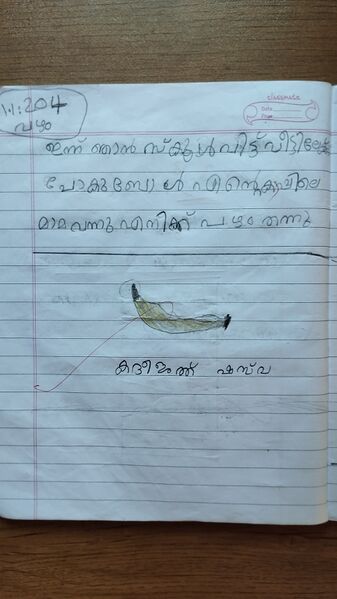 classmate
Date
Page
11:204
പഴം
ഇന്ന് ഞാൻ സ്കൂൾ വിട്ട് വീട്ടിലേക്ക്
പോകുബോൾ എന്റെ
മാമ വന്നു എനിക്ക് പഴം തന്നു
കദീജത്ത് ഷസ്‌വ